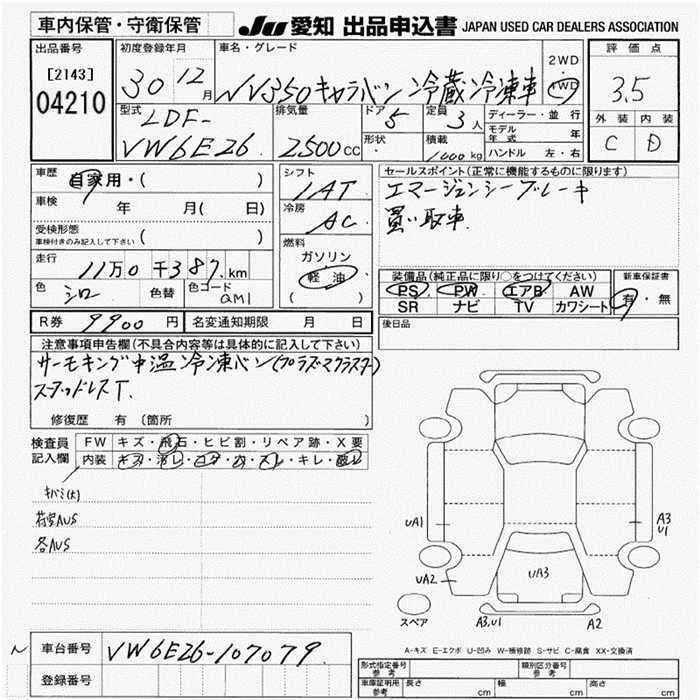 車内保管・守衛保管
JU 愛知 出品申込書 JAPAN USED CAR DEALERS ASSOCIATION
出品番号
[2143]
04210
初度登録年月
30 12月
車名・グレード
NV350キャラバン 冷蔵冷凍車
2WD
・
4WD
評価点
3.5
外装 内装
C D
型式
LDF-
VW6E26
排気量
2,500cc
ドア 5
形状 ・
定員 3人
積載
1000kg
ディーラー・並行
モデル年式 年
ハンドル 左・右
車歴
自家用・( )
車検
年 月( 日)
受検形態
車検付きのみ記入して下さい ( )
走行
11万0千387km
色 シロ 色替 色コード QM1
シフト
1AT
冷房
AC
燃料
ガソリン
軽油
( )
セールスポイント(正常に機能するものに限ります)
エマージェンシーブレーキ
買い取車
装備品(純正品に限り○をつけてください)
PS PW エアB AW
SR ナビ TV カワシート
新車保証書
有・無
R券 9900円 名変通知期限 月 日
後日品
注意事項申告欄(不具合内容等は具体的に記入して下さい)
サーモキング中温冷凍バン(プラズマクラスター)
スタッドレスT.
修復歴 有(箇所 )
検査員記入欄
FW キズ・飛石・ヒビ割・リペア跡・X要
内装 キズ・汚レ・コゲ・穴・スレ・キレ・破レ
キバミ(大)
荷室AUS
各AUS
UA1
A3
U1
UA2
UA3
スペア
A3.U1
A2
A-キズ E-エクボ U-凹み W-補修跡 S-サビ C-腐食 XX-交換済
N
車台番号 VW6E26-107079
登録番号
形式指定番号
参考
類別区分番号
参考
車庫証明用
参考
長さ cm 幅 cm 高さ cm